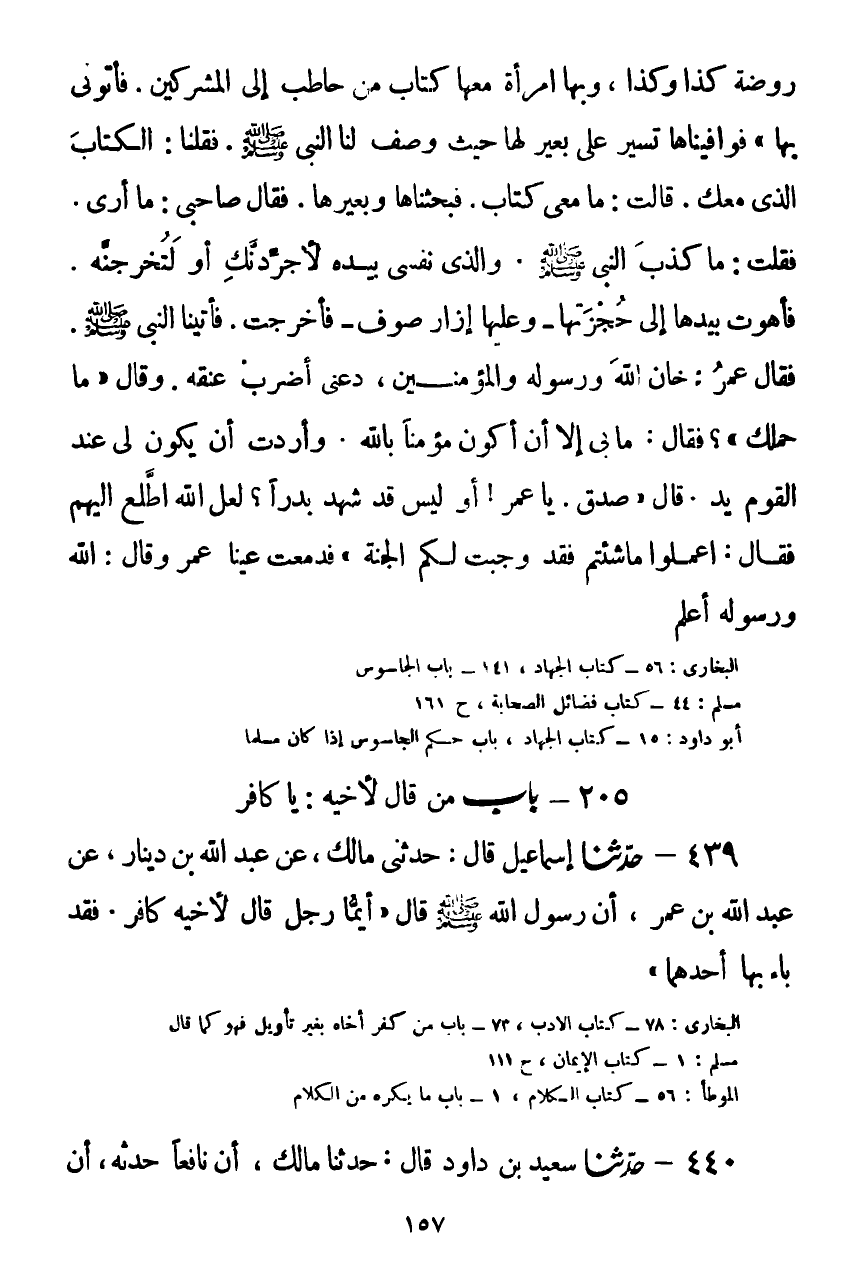 روضة كذا وكذا ، وبها امرأة معها كتاب من حاطب إلى المشركين . فأتونى
بها » فوافيناها تسير على بعير لها حيث وصف لنا النبى ﷺ . فقلنا : الكتابَ
الذى معك . قالت : ما معى كتاب . فبحثناها وبعيرها . فقال صاحبى : ما أرى .
فقلت : ما كذبَ النبى ﷺ . والذى نفسى بيده لأجرِّدنَّكِ أو لَتُخرجنَّه .
فأهوت بيدها إلى حُجْزَتها ـ وعليها إزار صوف ـ فأخرجت . فأتينا النبى ﷺ .
فقال عمرُ : خان اللهَ ورسوله والمؤمنين ، دعنى أضربْ عنقه . وقال « ما
حملك » ؟ فقال : ما بى إلا أن أكون مؤمناً بالله . وأردت أن يكون لى عند
القوم يد . قال « صدق . يا عمر ! أو ليس قد شهد بدراً ؟ لعل الله اطَّلع اليهم
فقال : اعملوا ماشئتم فقد وجبت لكم الجنة » فدمعت عينا عمر وقال : الله
ورسوله أعلم
البخارى : ٥٦ ـ كتاب الجهاد ، ١٤١ ـ باب الجاسوس
مسلم : ٤٤ ـ كتاب فضائل الصحابة ، ح ١٦١
أبو داود : ١٥ ـ كتاب الجهاد ، باب حكم الجاسوس إذا كان مسلما
٢٠٥ ـ باب من قال لأخيه : يا كافر
٤٣٩ ـ حدّثنا إسماعيل قال : حدثنى مالك ، عن عبد الله بن دينار ، عن
عبد الله بن عمر ، أن رسول الله ﷺ قال « أيُّما رجل قال لأخيه كافر . فقد
باء بها أحدهما »
البخارى : ٧٨ ـ كتاب الادب ، ٧٣ ـ باب من كفر أخاه بغير تأويل فهو كما قال
مسلم : ١ ـ كتاب الإيمان ، ح ١١١
الموطأ : ٥٦ ـ كتاب الكلام ، ١ ـ باب ما يكره من الكلام
٤٤٠ ـ حدّثنا سعيد بن داود قال : حدثنا مالك ، أن نافعاً حدثه ، أن
١٥٧